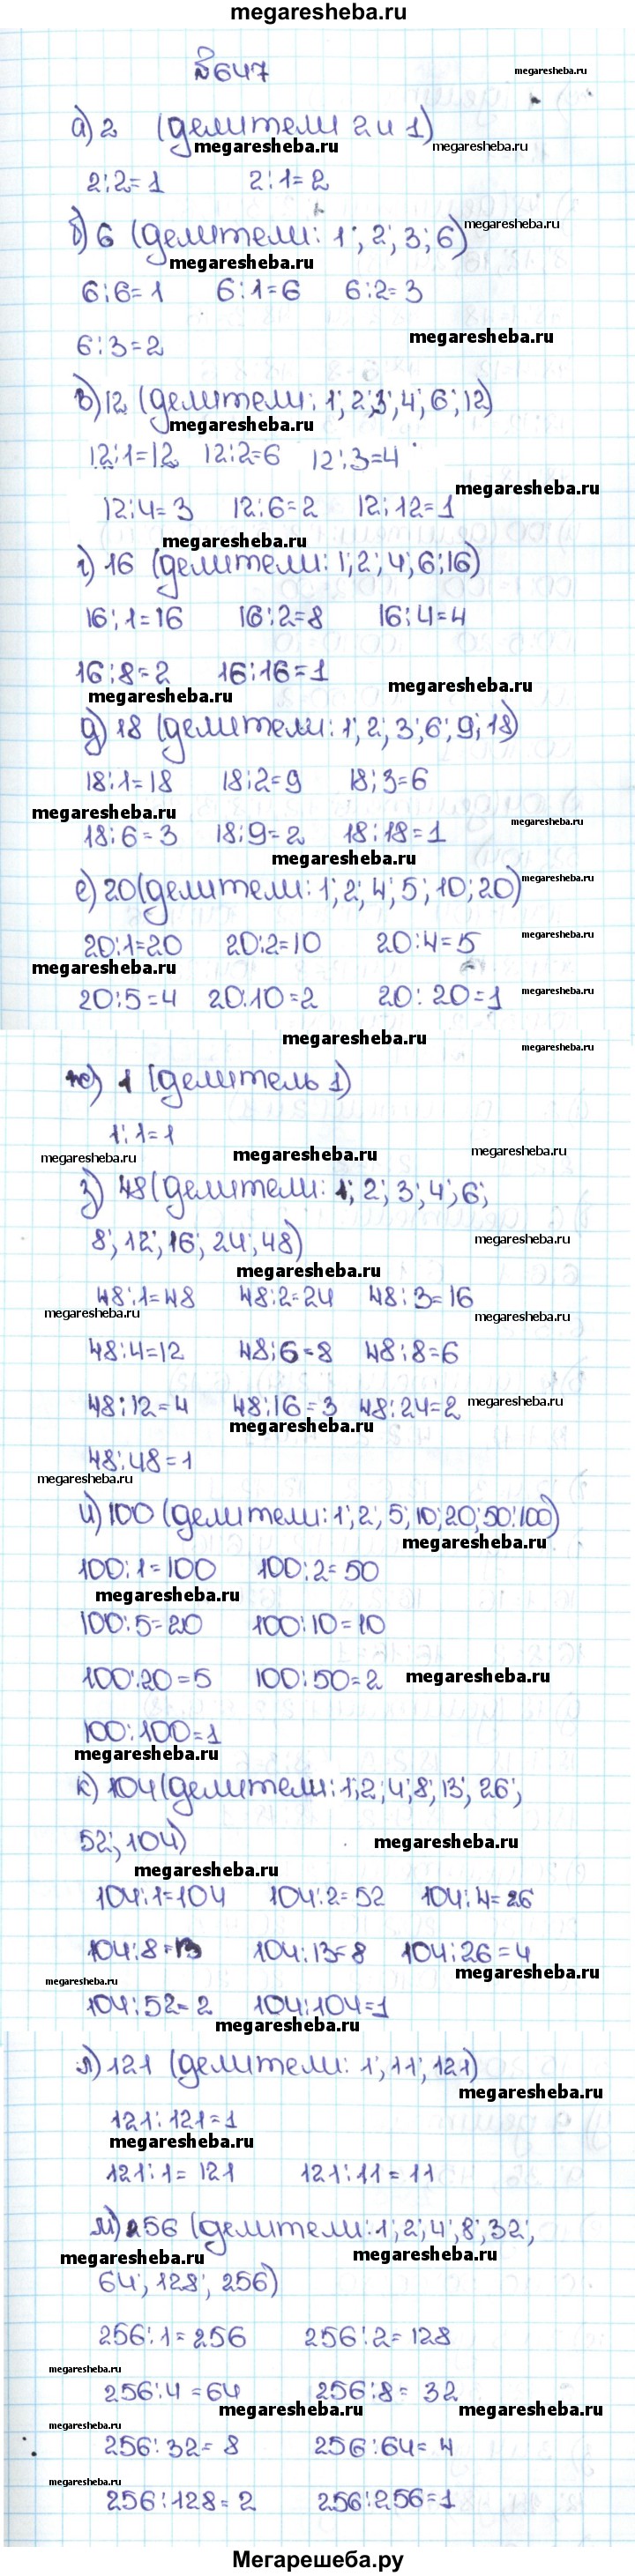 megaresheba.ru
№647
megaresheba.ru
а) 2 (делители 2 и 1)
megaresheba.ru megaresheba.ru
2:2=1 2:1=2
б) 6 (делители: 1; 2; 3; 6) megaresheba.ru
megaresheba.ru
6:6=1 6:1=6 6:2=3
megaresheba.ru
6:3=2
в) 12 (делители: 1; 2; 3; 4; 6; 12)
megaresheba.ru
12:1=12 12:2=6 12:3=4
megaresheba.ru
12:4=3 12:6=2 12:12=1
megaresheba.ru
г) 16 (делители: 1; 2; 4; 6; 16)
16:1=16 16:2=8 16:4=4
16:8=2 16:16=1
megaresheba.ru megaresheba.ru
д) 18 (делители: 1; 2; 3; 6; 9; 18)
18:1=18 18:2=9 18:3=6
megaresheba.ru megaresheba.ru
18:6=3 18:9=2 18:18=1
megaresheba.ru
е) 20 (делители: 1; 2; 4; 5; 10; 20) megaresheba.ru
20:1=20 20:2=10 20:4=5 megaresheba.ru
megaresheba.ru
20:5=4 20:10=2 20:20=1 megaresheba.ru
megaresheba.ru megaresheba.ru
ж) 1 (делитель 1)
1:1=1
megaresheba.ru megaresheba.ru megaresheba.ru
з) 48 (делители: 1; 2; 3; 4; 6;
8; 12; 16; 24; 48) megaresheba.ru
megaresheba.ru
48:1=48 48:2=24 48:3=16
megaresheba.ru megaresheba.ru
48:4=12 48:6=8 48:8=6
48:12=4 48:16=3 48:24=2 megaresheba.ru
megaresheba.ru
48:48=1
megaresheba.ru
и) 100 (делители: 1; 2; 5; 10; 20; 50; 100)
megaresheba.ru
100:1=100 100:2=50
megaresheba.ru
100:5=20 100:10=10
100:20=5 100:50=2 megaresheba.ru
100:100=1
megaresheba.ru
к) 104 (делители: 1; 2; 4; 8; 13; 26;
52; 104) megaresheba.ru
megaresheba.ru
104:1=104 104:2=52 104:4=26
104:8=13 104:13=8 104:26=4
megaresheba.ru megaresheba.ru
104:52=2 104:104=1
megaresheba.ru
л) 121 (делители: 1; 11; 121)
megaresheba.ru
121:121=1
megaresheba.ru
121:1=121 121:11=11
м) 256 (делители: 1; 2; 4; 8; 32;
megaresheba.ru megaresheba.ru
64; 128; 256)
256:1=256 256:2=128
megaresheba.ru
256:4=64 256:8=32
megaresheba.ru megaresheba.ru
megaresheba.ru
256:32=8 256:64=4
megaresheba.ru
256:128=2 256:256=1
Мегарешеба.ру